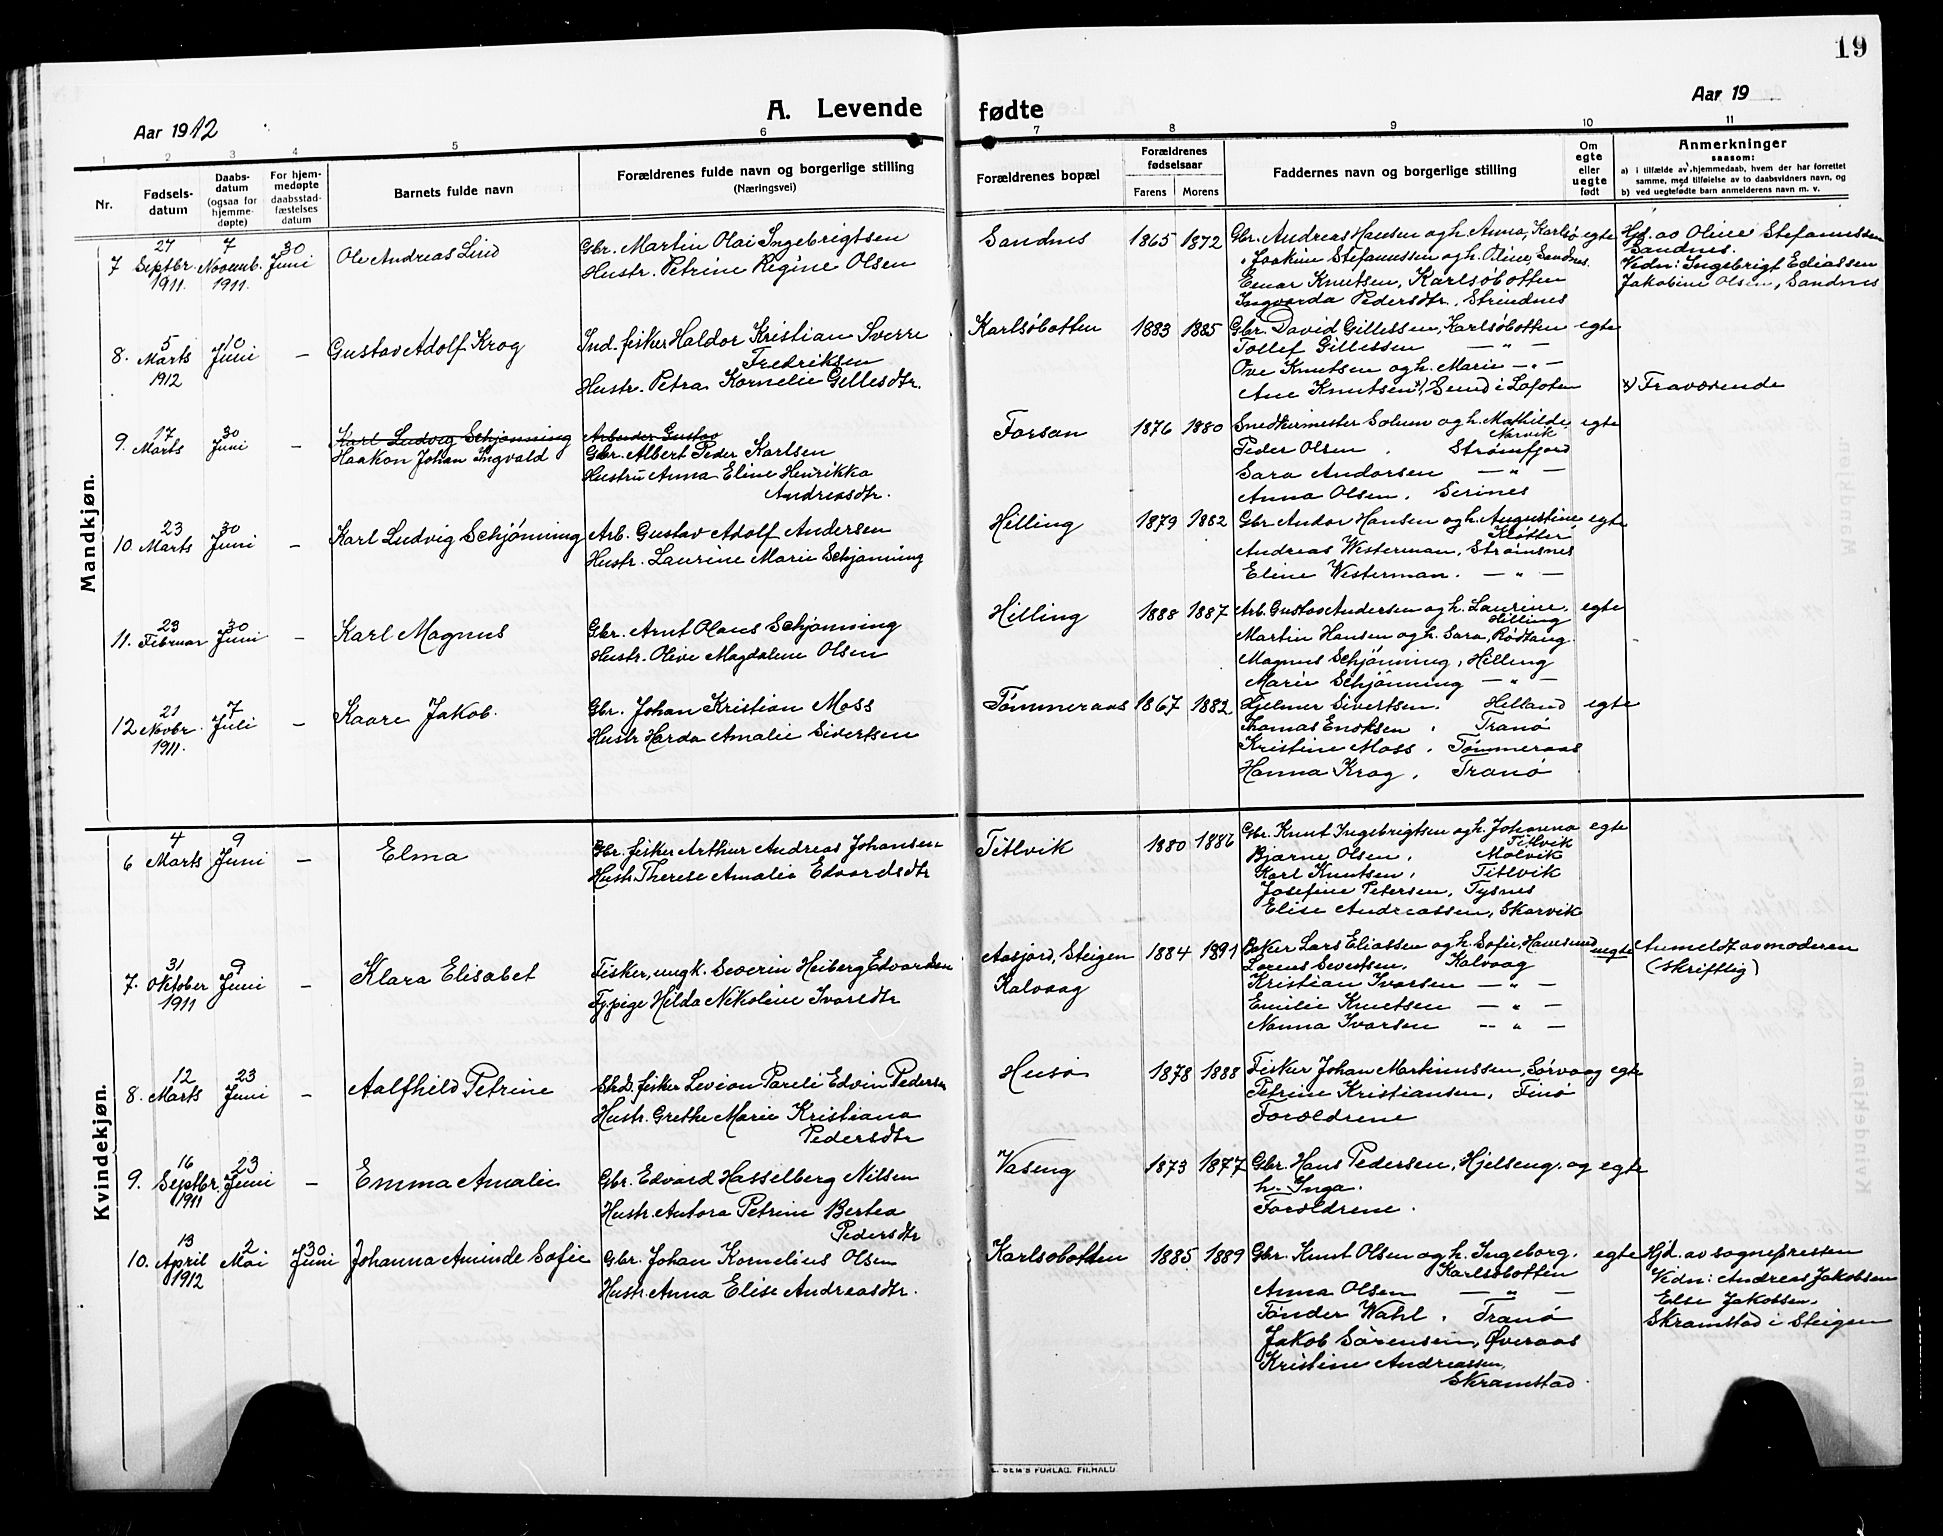 19
A. Levende fødte
Aar 1912
Aar 19
1 2 3 4 5 6 7 8 9 10 11
Nr.
Fødsels-
datum
Daabs-
datum
(ogsaa for
hjemme-
døpte)
For hjem-
medøpte
daabsstad-
fæstelses
datum
Barnets fulde navn
Forældrenes fulde navn og borgerlige stilling
(Næringsvei)
Forældrenes bopæl
Forældrenes
fødselsaar
Farens Morens
Faddernes navn og borgerlige stilling
Om
egte
eller
uegte
født
Anmerkninger
saasom:
a) i tilfælde av hjemmedaab, hvem der har forrettet
samme, med tilføielse av to daabsvidners navn, og
b) ved uegtefødte barn anmelderens navn m. v.
Mandkjøn.
7 27 Septbr. 1911. 7 Novemb. 1911. 30 Juni
Ole Andreas Lind
Gbr. Martin Olai Ingebrigtsen
Hustr. Petrine Regine Olsen
Sandnes 1865 1872
Gbr. Andreas Hansen og h. Anna, Karlsø
" Joakim Stefanussen og h. Oline, Sandnes.
Einar Knutsen, Karlsöbotten
Ingvarda Pedersdtr., Strindnes
egte
Hjd. av Oline Stefanussen
Sandnes.
Vidn: Ingebrigt Ediassen
Jakobine Olsen, Sandnes
8. 5 Marts 1912 10 Juni —
Gustav Adolf Krog
Ind. fisker Haldor Kristian Sverre
Fredriksen
Hustr. Petra Kornelie Gillesdtr.
Karlsöbotten 1883 1885
Gbr. David Gillessen, Karlsöbotten
Tollef Gillessen — " —
Ove Knutsen og h. Marie — " —
Ane Knutsen x), Sund i Lofoten
egte
x) Fraværende
9. 17 Marts 30 Juni —
Karl Ludvig Schjønning
Haakon Johan Ingvald
Arbeider Gustav
Gbr. Albert Peder Karlsen
Hustru Anna Eline Henrikka
Andreasdtr.
Forsan 1876 1880
Snedkermester Solum og h. Mathilde,
Narvik
Peder Olsen, Strømfjord
Sara Andorsen — " —
Anna Olsen, Serines
egte
10. 23 Marts 30 Juni —
Karl Ludvig Schjønning
Arb. Gustav Adolf Andersen
Hustr. Laurine Marie Schjønning
Hilling 1879 1882
Gbr Andor Hansen og h. Augustine
Kløtter
Andreas Westerman, Strømsnes
Eline Westerman. — " —
egte
11. 23 Februar 30 Juni —
Karl Magnus
Gbr. Arnt Olaus Schjønning
Hustr. Olive Magdalene Olsen
Hilling 1888 1887
Arb. Gustav Andersen og h. Laurine,
Hilling
Martin Hansen og h. Sara, Rødtang.
Magnus Schjønning, Hilling
Marie Schjønning — " —
egte
12 21 Novbr. 1911. 7 Juli —
Kaare Jakob.
Gbr. Johan Kristian Moss
Hustr Harda Amalie Sivertsen
Tömmeraas 1867 1882
Hjelmer Sivertsen. Helland
Thomas Enoksen, Tranö
Kristine Moss, Tömmeraas
Hanna Krog, Tranö
egte
Kvindekjøn.
6 4 Marts 9 Juni —
Elma
Gbr. fisker Arthur Andreas Johansen
Hustr. Therese Amalie Edvardsdtr
Titlvik 1880 1886
Gbr. Knut Ingebrigtsen og h. Johanna
Titlvik
Bjarne Olsen, Molvik
Karl Knutsen, Titlvik
Josefine Petersen, Tysnes
Elise Andreassen, Skarvik
egte
7. 31 Oktober 1911 9 Juni —
Klara Elisabet
Fisker, ungk. Severin Heiberg Edvardsen
Fj. pige Hilda Nikoline Ivarsdtr
Aasjord, Steigen
Kalvaag
1884 1891
Baker Lars Eliassen og h. Sofie,
Lorens Sivertsen, Kalvaag
Kristian Ivarsen — " —
Emilie Knutsen — " —
Nanna Ivarsen — " —
uegte
Anmeldt av moderen
(skriftlig)
8. 12 Marts 23 Juni —
Aalfhild Petrine
Strd. fisker Levion Pareli Edvin Pedersen
Hustr. Grethe Marie Kristiana
Pedersdtr
Husö 1878 1888
Fisker Johan Markussen, Sørvaag
Petrine Kristiansen, Finö
Forældrene
egte
9. 16 Septbr. 1911 23 Juni —
Emma Amalie
Gbr. Edvard Hasselberg Nilsen
Hustr. Antora Petrine Bertea
Pedersdtr
Vaseng 1873 1877
Gbr. Hans Pedersen, Hjelseng. og
h. Inga.
Forældrene.
egte
10. 13 April 1912 2 Mai 30 Juni
Johanna Aminde Sofie
Gbr. Johan Kornelius Olsen
Hustr. Anna Elise Andreasdtr.
Karlsöbotten 1885 1889
Gbr. Knut Olsen og h. Ingeborg.
Karlsöbotten
Anna Olsen — " —
Tönder Wahl, Tranö
Jakob Sörensen, Øveraas
Kristine Andreassen,
Skramstad.
egte
Hjd. av sognepresten
Vidn: Andreas Jakobsen
Else Jakobsen.
Skramstad i Steigen
E. SEM'S FORLAG. FR.HALD